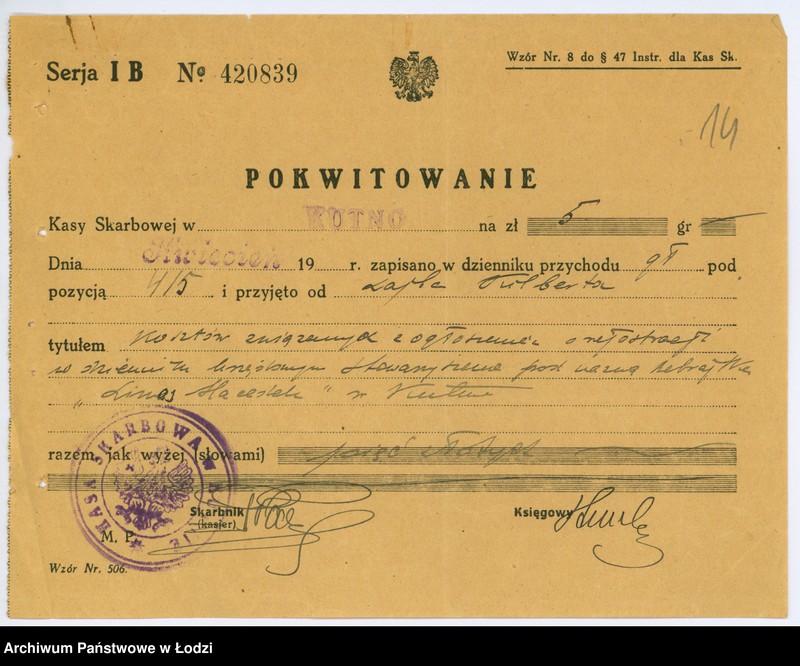 Serja I B № 420839
Wzór Nr. 8 do § 47 Instr. dla Kas Sk.
14
POKWITOWANIE
Kasy Skarbowej w KUTNO na zł 5 gr —
Dnia Kwiecień 19 r. zapisano w dzienniku przychodu gł pod
pozycją 415 i przyjęto od Lajba Filberta
tytułem kosztów związanych z ogłoszeniem o rejestracji
w dzienniku Stowarzyszenia pod nazwą
"Linas Hacedek" w Kutnie
razem jak wyżej (słowami) pięć złotych
KASA SKARBOWA W KUTNIE
Skarbnik
(kasjer)
Księgowy
M. P.
Wzór Nr. 506.
Archiwum Państwowe w Łodzi